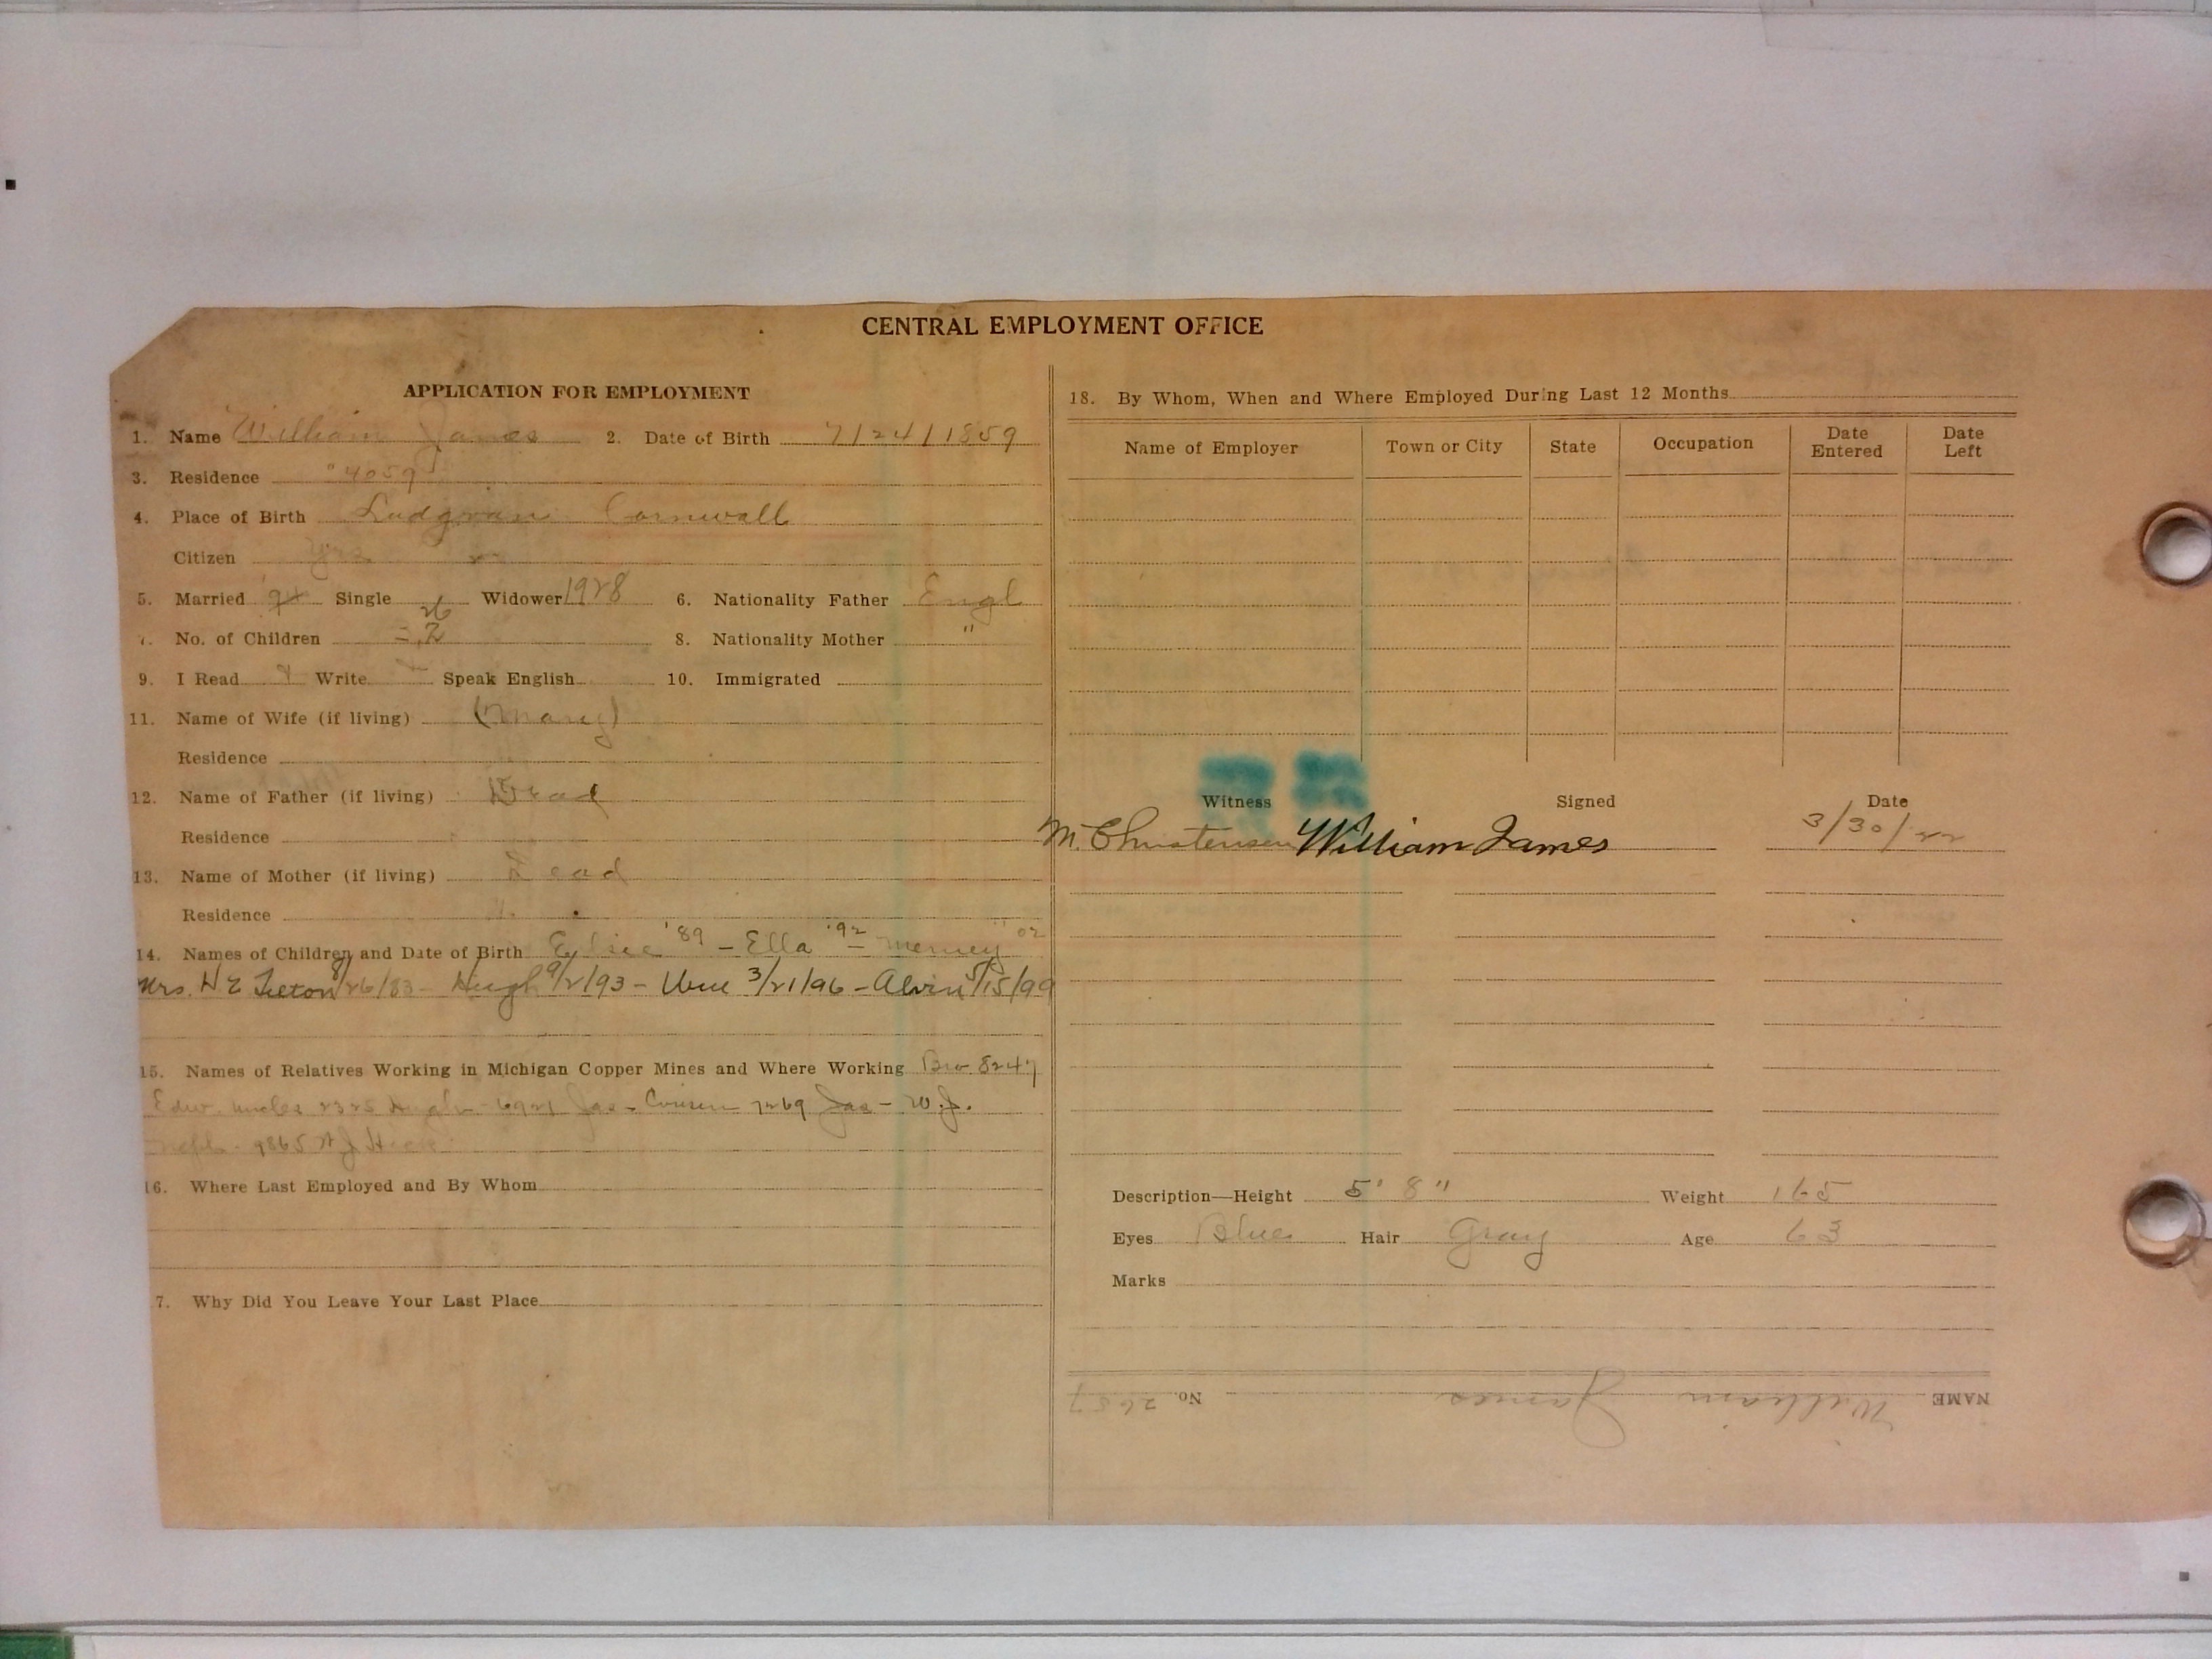 CENTRAL EMPLOYMENT OFFICE
APPLICATION FOR EMPLOYMENT
1. Name William James 2. Date of Birth 7/24/1859
3. Residence "4059"
4. Place of Birth Ludgvan Cornwall
Citizen Yes
5. Married Single Widower 1928 6. Nationality Father Engl
7. No. of Children 2 8. Nationality Mother "
9. I Read Write Speak English 10. Immigrated
11. Name of Wife (if living) (Mary)
Residence
12. Name of Father (if living) Dead
Residence
13. Name of Mother (if living) Dead
Residence
14. Names of Children and Date of Birth '89 - Ella '92 - '02
Mrs. H E 8/26/83 - Hugh 9/2/93 - 3/21/96 - Alvin 5/15/99
15. Names of Relatives Working in Michigan Copper Mines and Where Working Bro. 8247
Edw. uncles 2325 Hugh - 6921 Jas - Cousin 7269 Jas - W.J.
neph - 9865
16. Where Last Employed and By Whom
7. Why Did You Leave Your Last Place
18. By Whom, When and Where Employed During Last 12 Months
Name of Employer Town or City State Occupation Date Entered Date Left
Witness Signed Date
M. Christensen William James 3/30/22
Description—Height 5' 8" Weight 165
Eyes Blue Hair Gray Age 63
Marks
NAME William James No. 2657